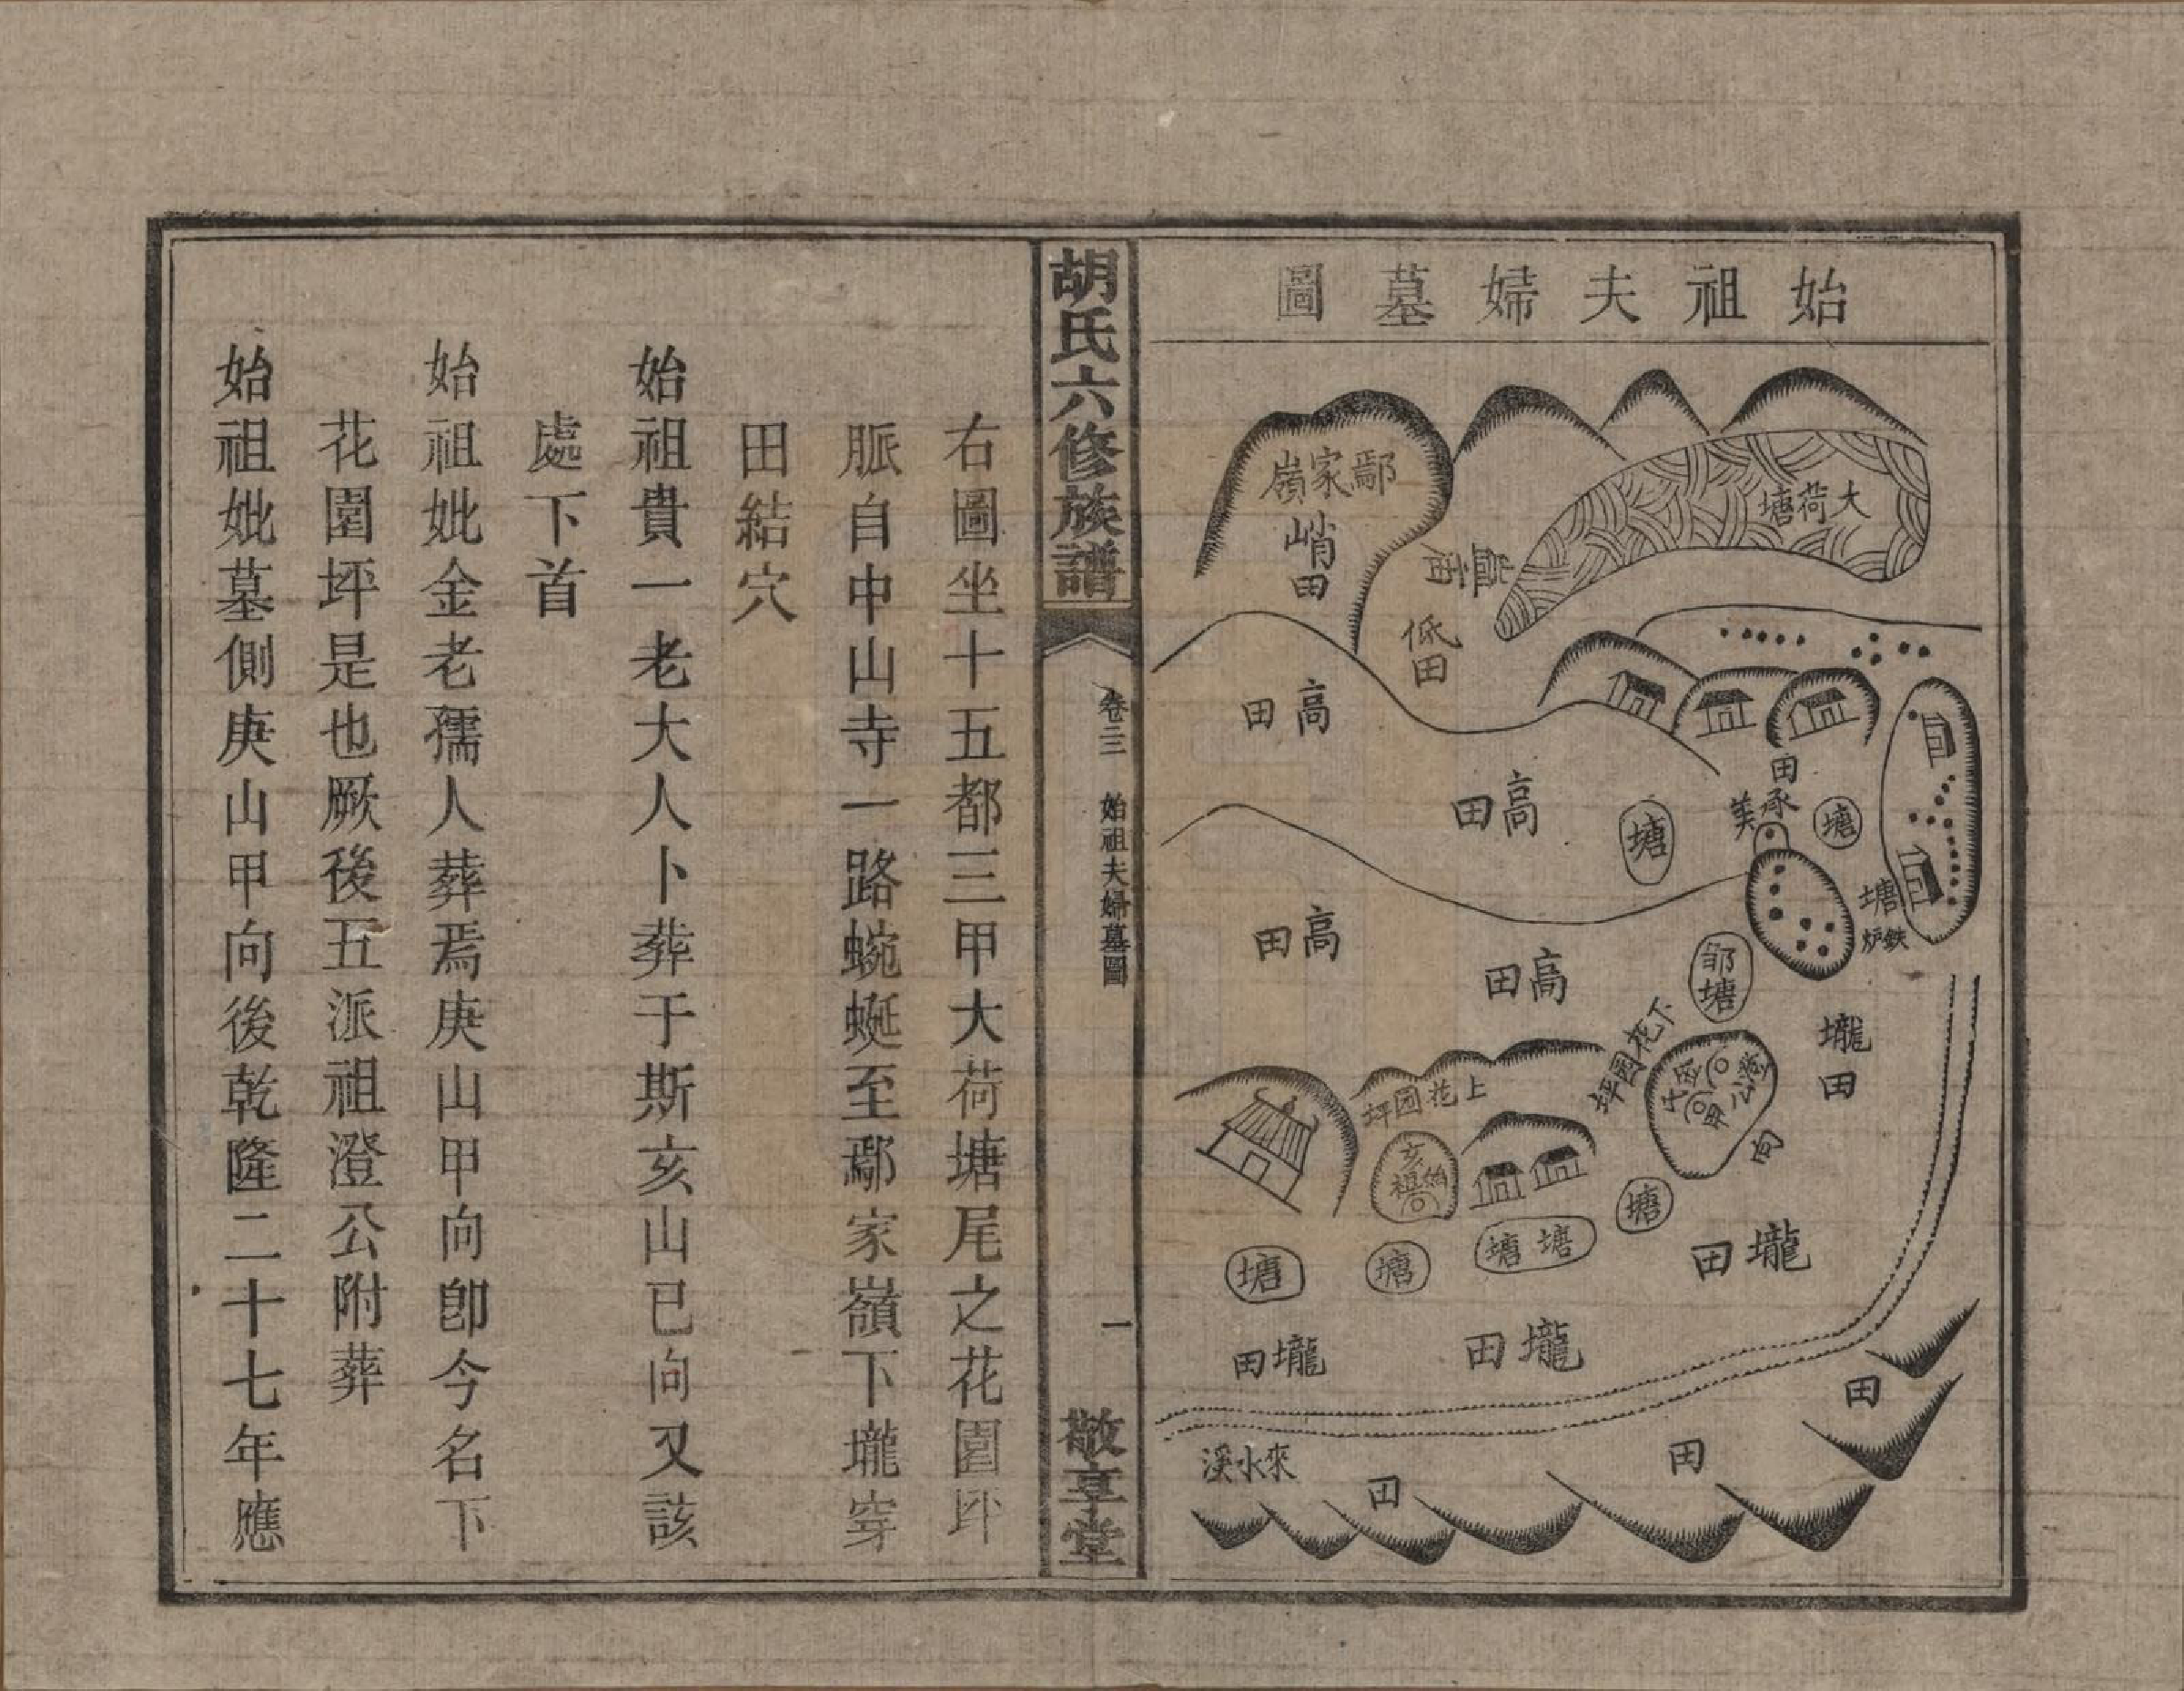 始祖夫婦墓圖
大荷塘
鄢家嶺
峭田
低田
高田
高田
塘
田
塘
塘
高田
高田
鄒塘
壠田
下花园坪
上花园坪
始祖
亥
向
塘
塘塘
塘
塘
壠田
壠田
壠田
來水溪
田
田
田
胡氏六修族譜
卷三
始祖夫婦墓圖
一
敬享堂
右圖坐十五都三甲大荷塘尾之花園坪
脈自中山寺一路蜿蜒至鄢家嶺下壠穿
田結穴
始祖貴一老大人卜葬于斯亥山已向又該
處下首
始祖妣金老孺人葬焉庚山甲向卽今名下
花園坪是也厥後五派祖澄公附葬
始祖妣墓側庚山甲向後乾隆二十七年應